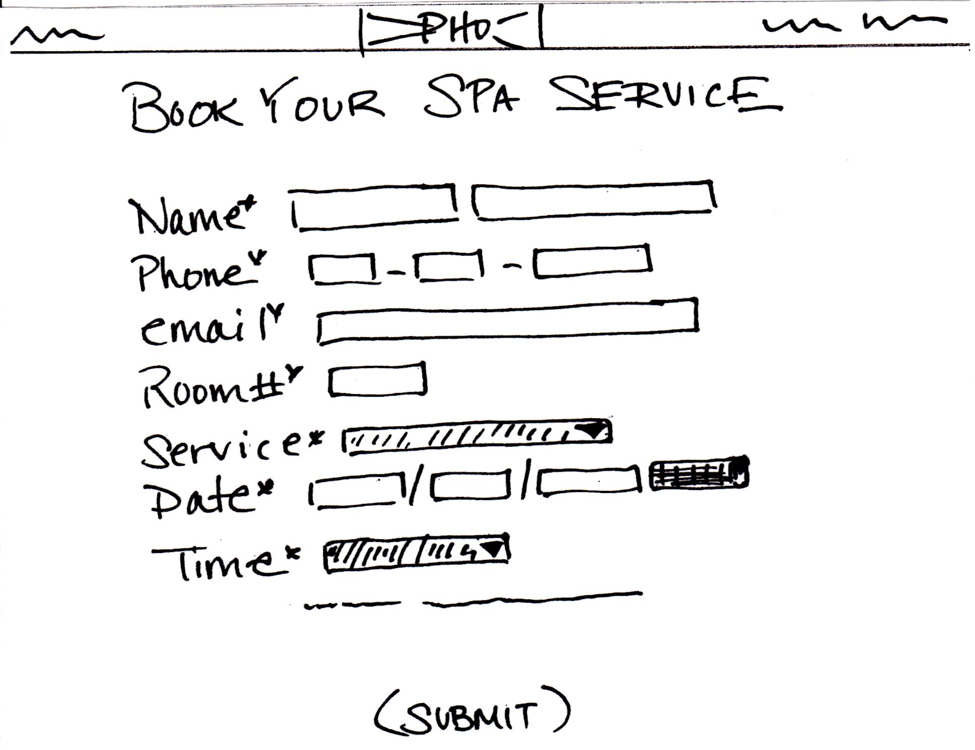 PHO
BOOK YOUR SPA SERVICE
Name*
Phone*
email*
Room#*
Service*
Date* / /
Time*
(SUBMIT)